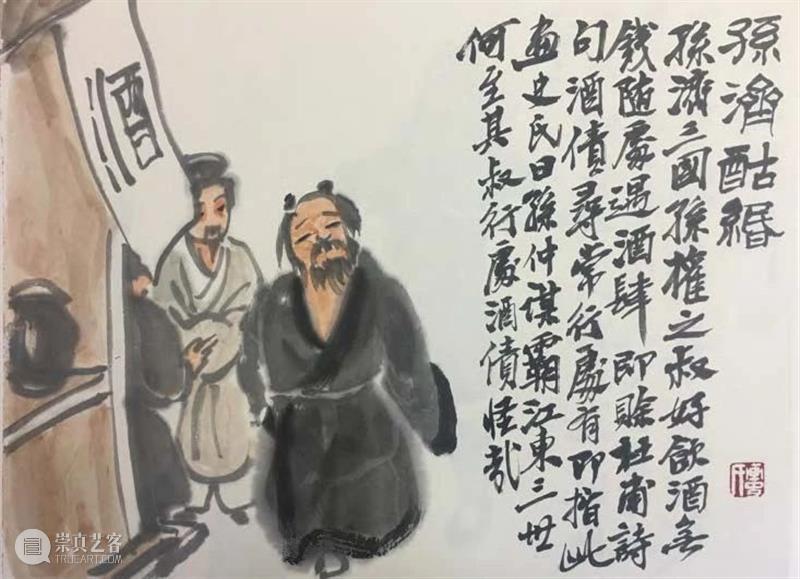 孫濟酤緡
孫濟三國孫權之叔好飲酒無
錢隨處遇酒肆即賒杜甫詩
句酒債尋常行處有即指此
畫史氏曰孫仲謀霸江東三世
何至其叔行處酒債怪哉
酒
崇真艺客
TRUEART.COM